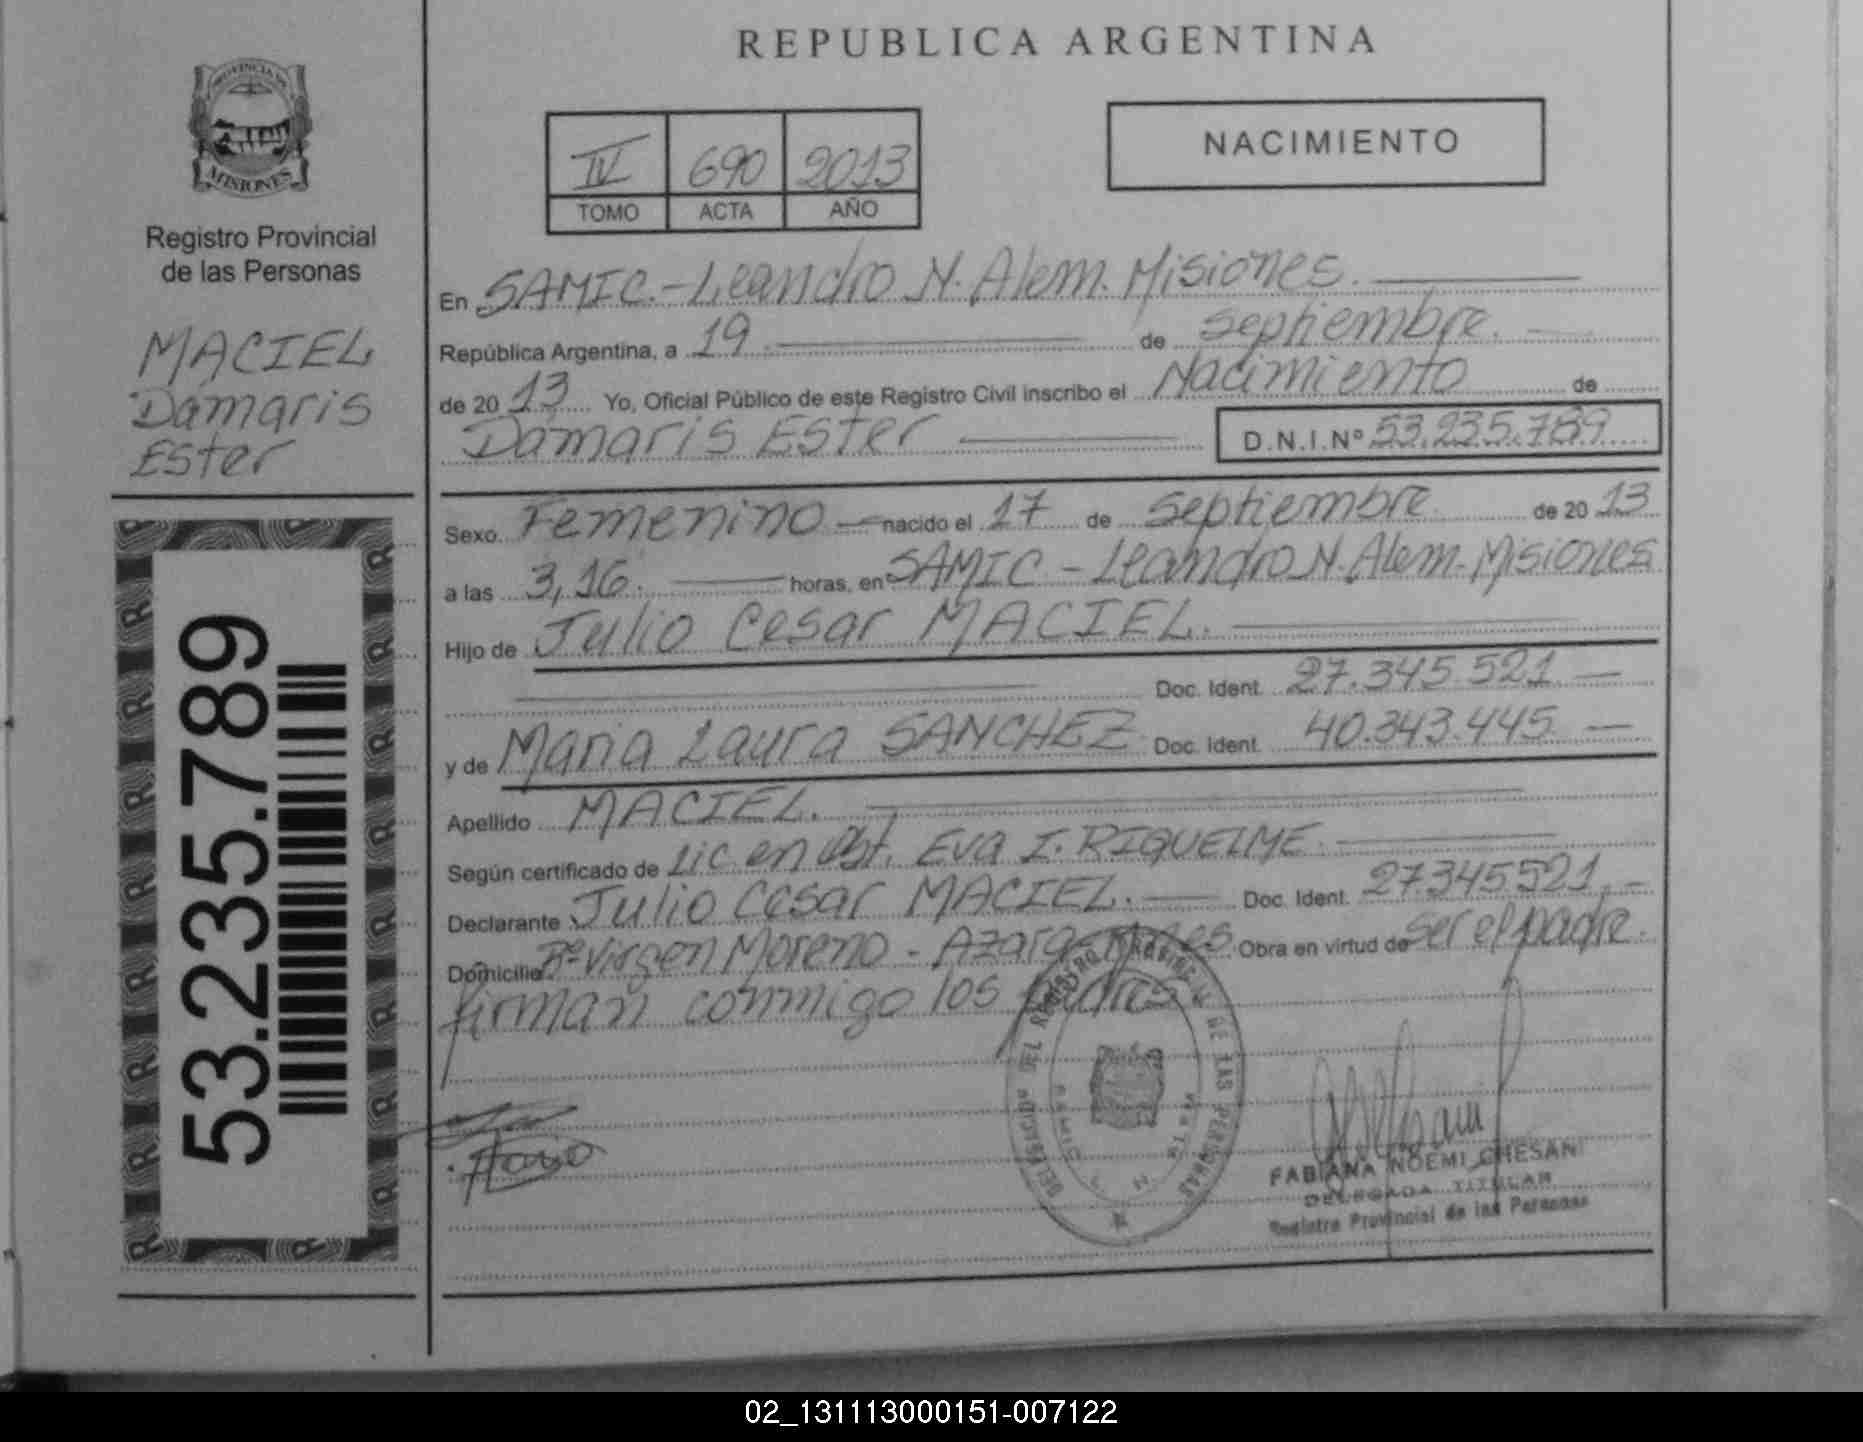 REPUBLICA ARGENTINA
PROVINCIA DE
MISIONES
Registro Provincial
de las Personas
MACIEL
Damaris
Ester
53.235.789
IV 690 2013
TOMO ACTA AÑO
NACIMIENTO
En SAMIC.-Leandro N. Alem. Misiones.
República Argentina, a 19 de septiembre.
de 2013 Yo, Oficial Público de este Registro Civil inscribo el Nacimiento de
Damaris Ester D.N.I.Nº 53.235.789
Sexo. Femenino nacido el 17 de septiembre de 2013
a las 3,16. horas, en SAMIC - Leandro N. Alem. Misiones
Hijo de Julio Cesar MACIEL.
Doc. Ident. 27.345.521
y de Maria Laura SANCHEZ Doc. Ident. 40.343.445
Apellido MACIEL.
Según certificado de Lic en Obst. Eva I. RIQUELME.
Declarante Julio Cesar MACIEL. Doc. Ident. 27.345.521
Domicilio Bº Virgen Moreno - Azara Mnes. Obra en virtud de ser el padre.
firman conmigo los padres
DELEGACION DEL REGISTRO PROVINCIAL DE LAS PERSONAS
FABIANA NOEMI CHESANI
DELEGADA TITULAR
Registro Provincial de las Personas
02_131113000151-007122